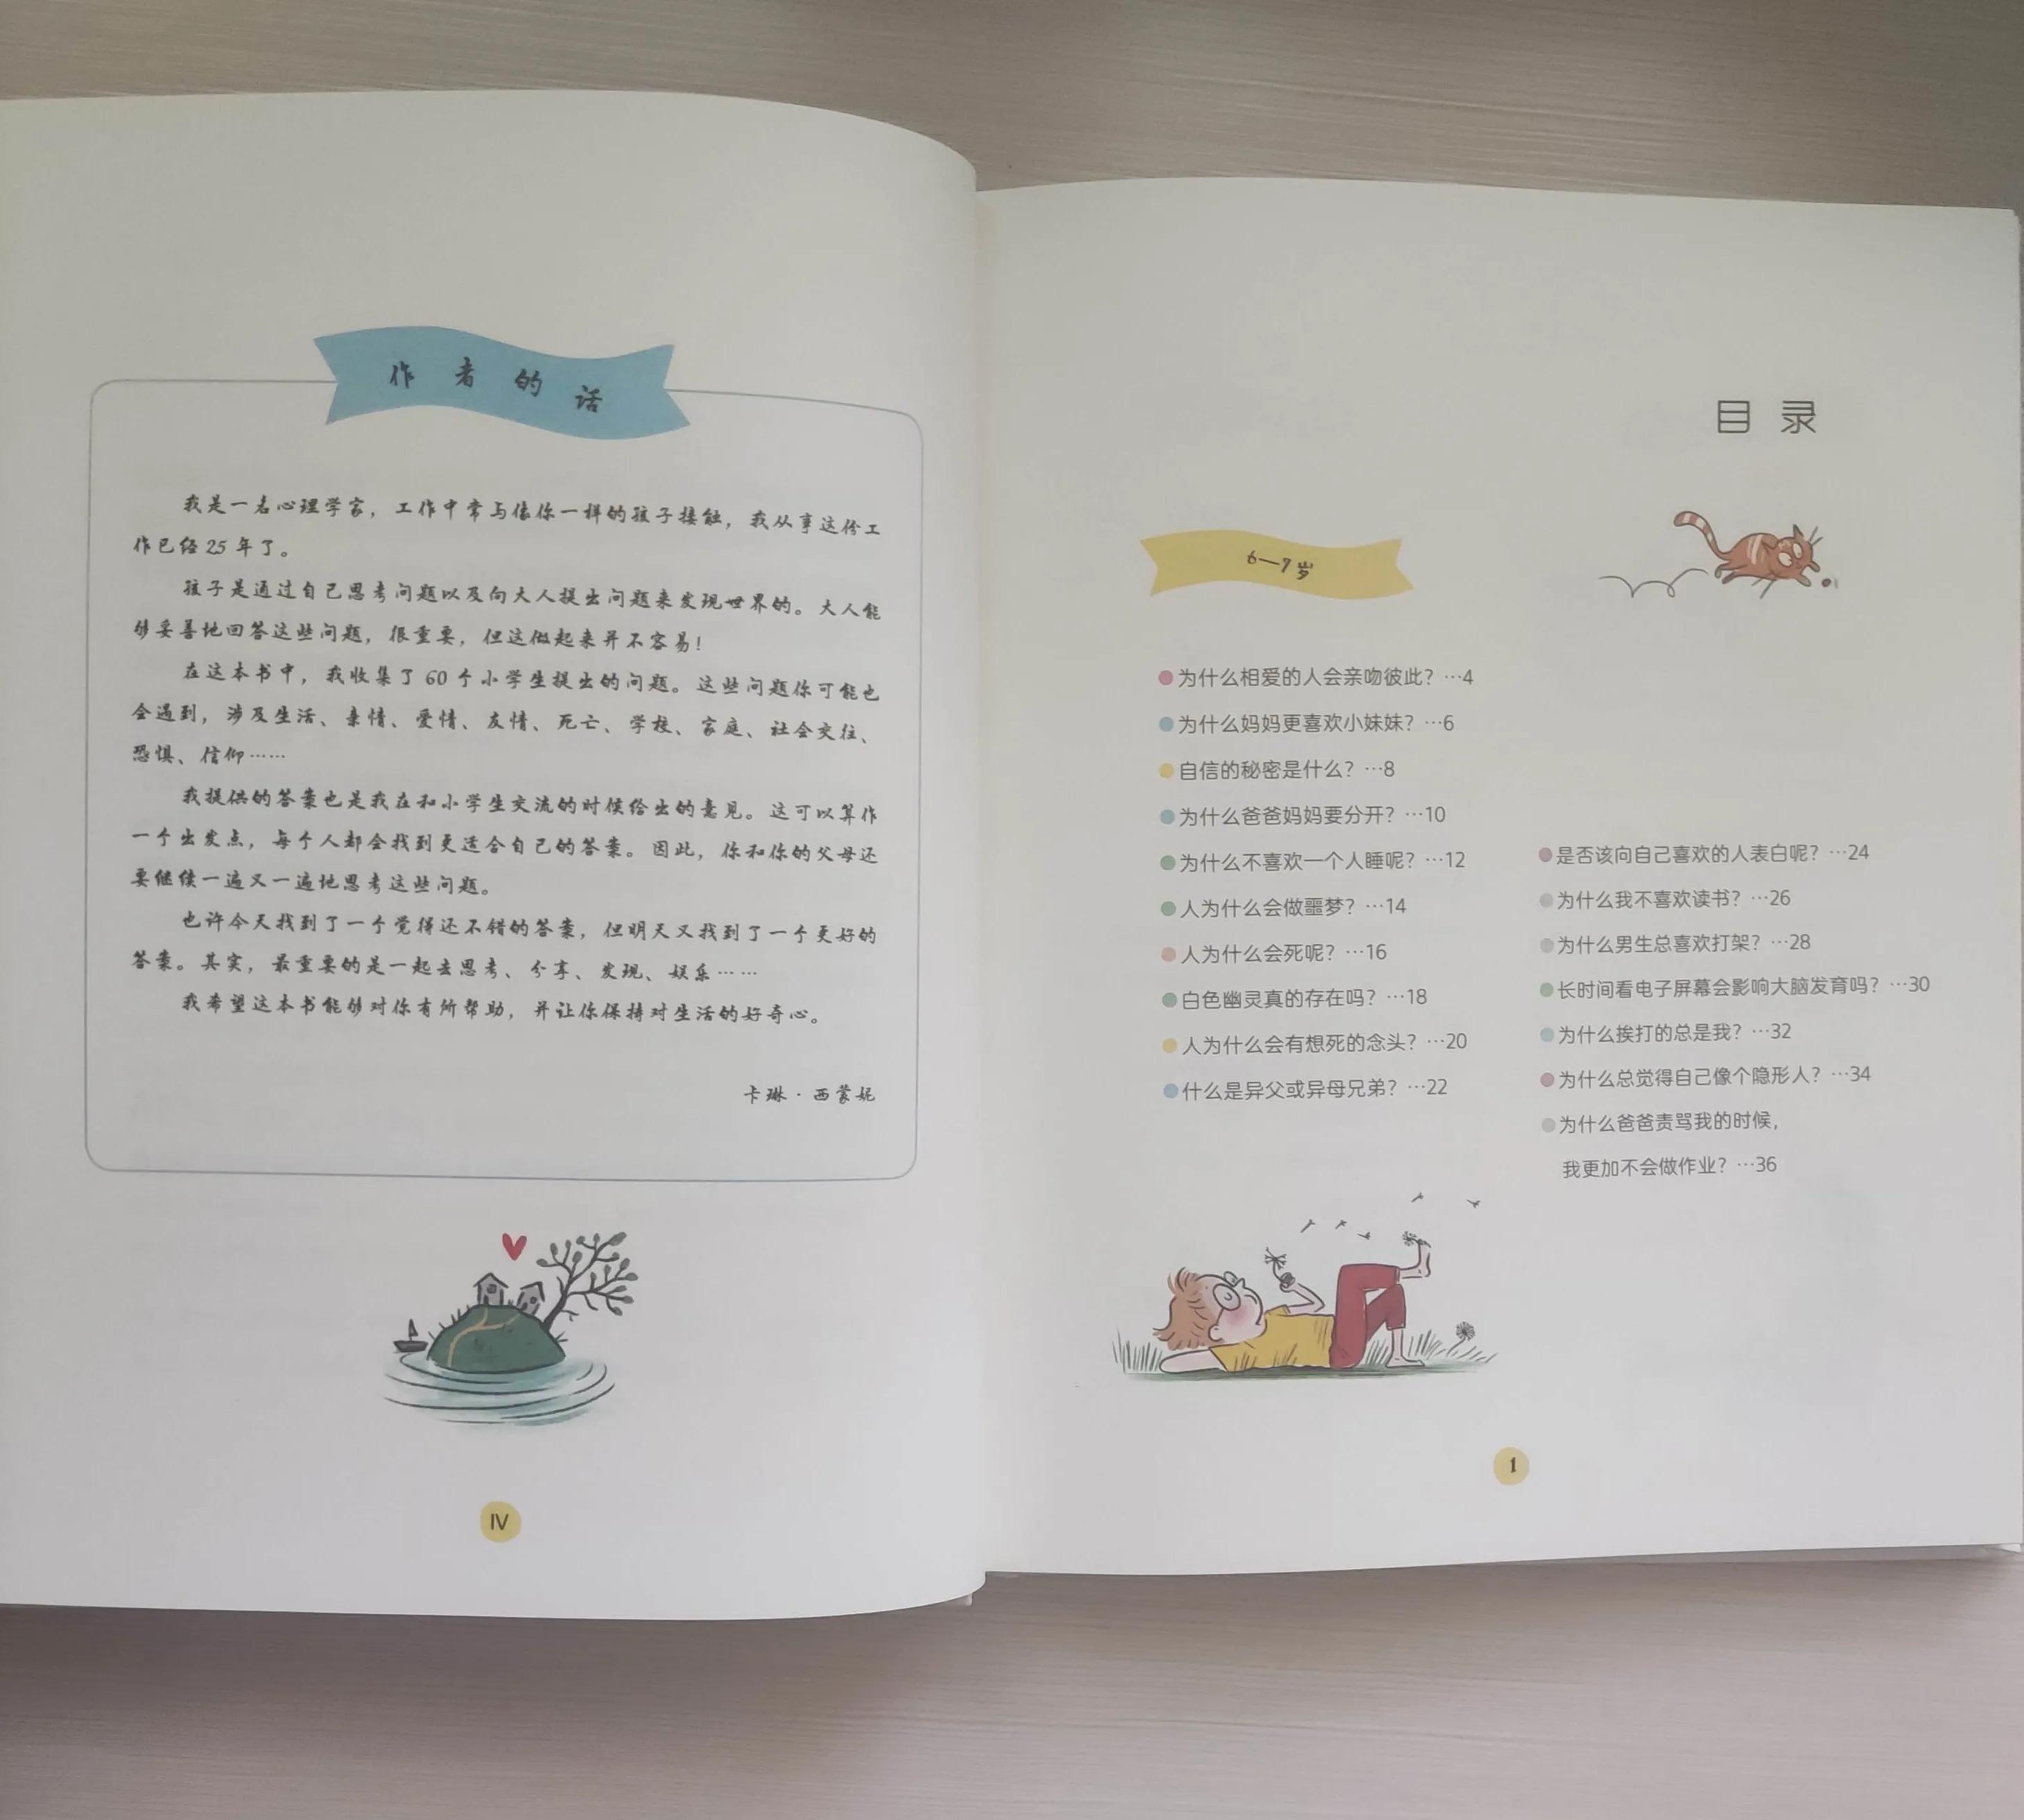 作者的话
我是一名心理学家，工作中常与像你一样的孩子接触，我从事这份工
作已经25年了。
孩子是通过自己思考问题以及向大人提出问题来发现世界的。大人能
够妥善地回答这些问题，很重要，但这做起来并不容易！
在这本书中，我收集了60个小学生提出的问题。这些问题你可能也
会遇到，涉及生活、亲情、爱情、友情、死亡、学校、家庭、社会交往、
恐惧、信仰……
我提供的答案也是我在和小学生交流的时候给出的意见。这可以算作
一个出发点，每个人都会找到更适合自己的答案。因此，你和你的父母还
要继续一遍又一遍地思考这些问题。
也许今天找到了一个觉得还不错的答案，但明天又找到了一个更好的
答案。其实，最重要的是一起去思考、分享、发现、娱乐……
我希望这本书能够对你有所帮助，并让你保持对生活的好奇心。
卡琳·西蒙妮
IV
目录
6—7岁
为什么相爱的人会亲吻彼此？…4
为什么妈妈更喜欢小妹妹？…6
自信的秘密是什么？…8
为什么爸爸妈妈要分开？…10
为什么不喜欢一个人睡呢？…12
人为什么会做噩梦？…14
人为什么会死呢？…16
白色幽灵真的存在吗？…18
人为什么会有想死的念头？…20
什么是异父或异母兄弟？…22
是否该向自己喜欢的人表白呢？…24
为什么我不喜欢读书？…26
为什么男生总喜欢打架？…28
长时间看电子屏幕会影响大脑发育吗？…30
为什么挨打的总是我？…32
为什么总觉得自己像个隐形人？…34
为什么爸爸责骂我的时候，
我更加不会做作业？…36
1